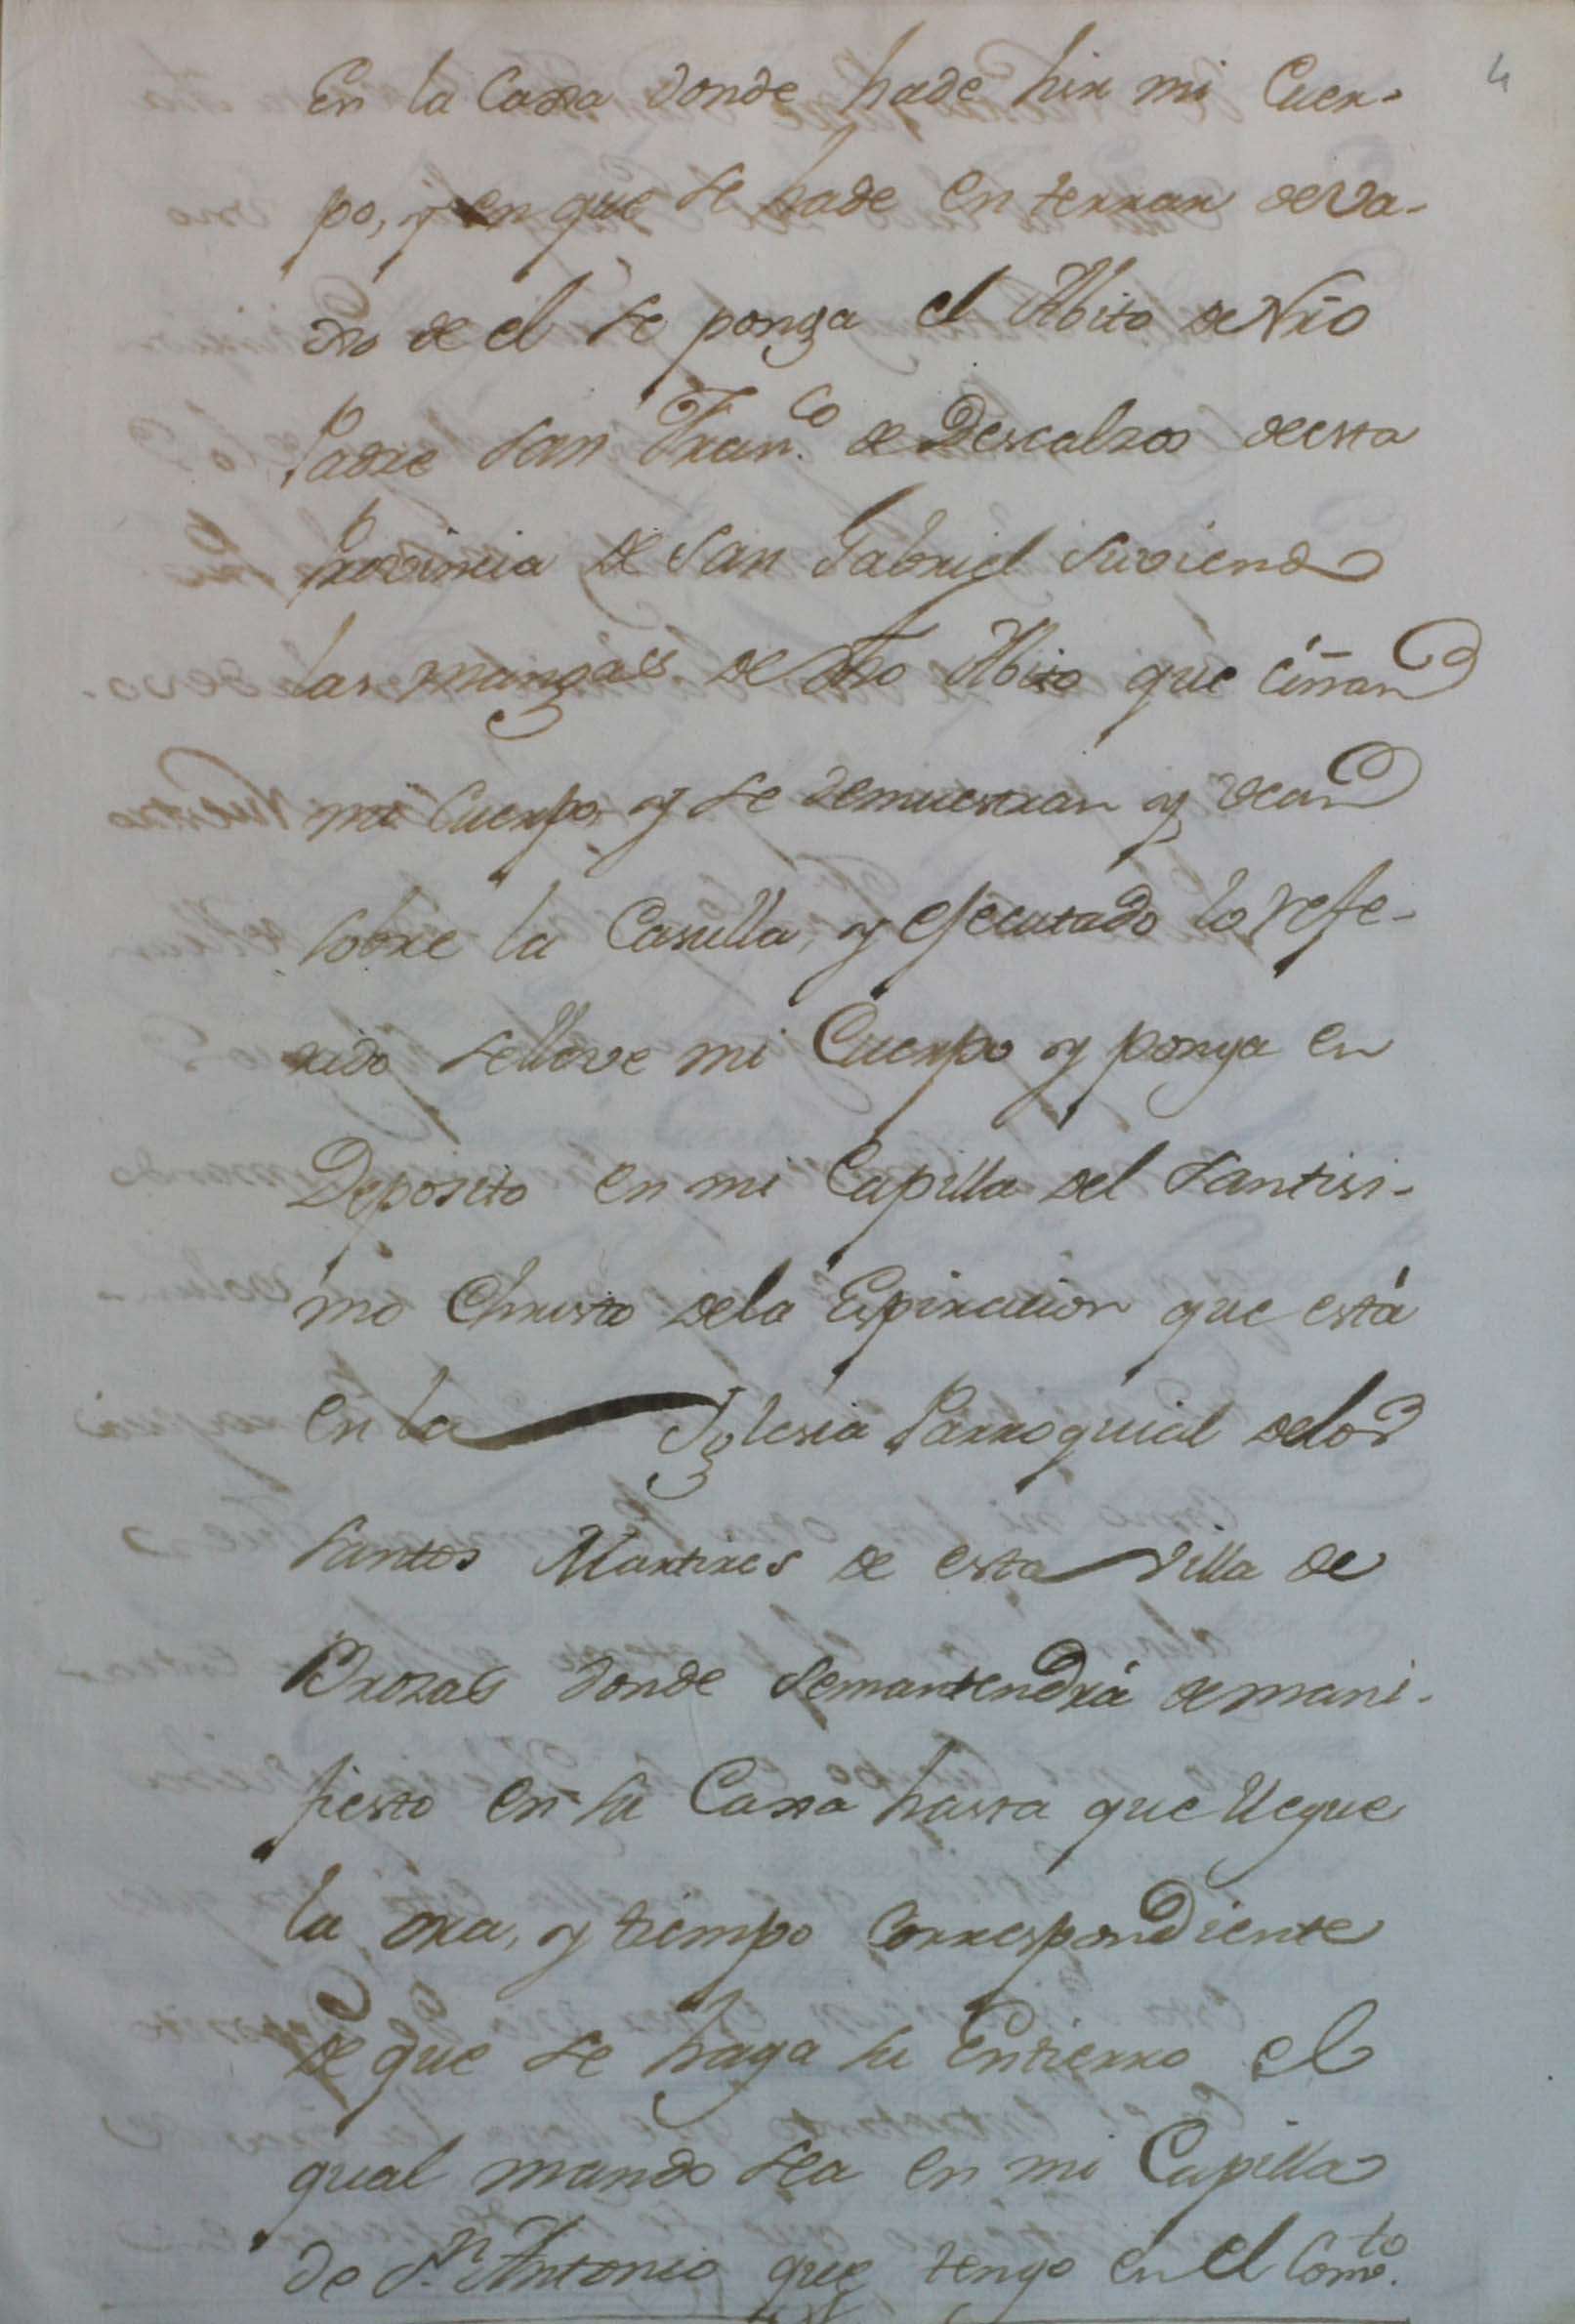 4
En la Caxa donde hade hir mi Cuer-
po, y en que se hade enterrar deva-
xo de el se ponga el Abito de Nro
Padre San Fran.co de Descalzos deesta
Provincia de San Gabriel sirviendo
las mangas de dho Abito que ciñan
mi Cuerpo y se demuestran y vean
sobre la Casulla, y efecutado lo refe-
rido sellove mi Cuerpo y ponga en
Deposito en mi Capilla del Santisi-
mo Christo dela Espiracion que está
en la Iglesia Parroquial delos
Santos Martires de esta Villa de
Brozas donde semantendrá demani-
fiesto en su Caxa hasta que llegue
la ora, y tiempo Correspondiente
de que se haga su Entierro el
qual mando sea en mi Capilla
de S.n Antonio que tengo en el Comv.to